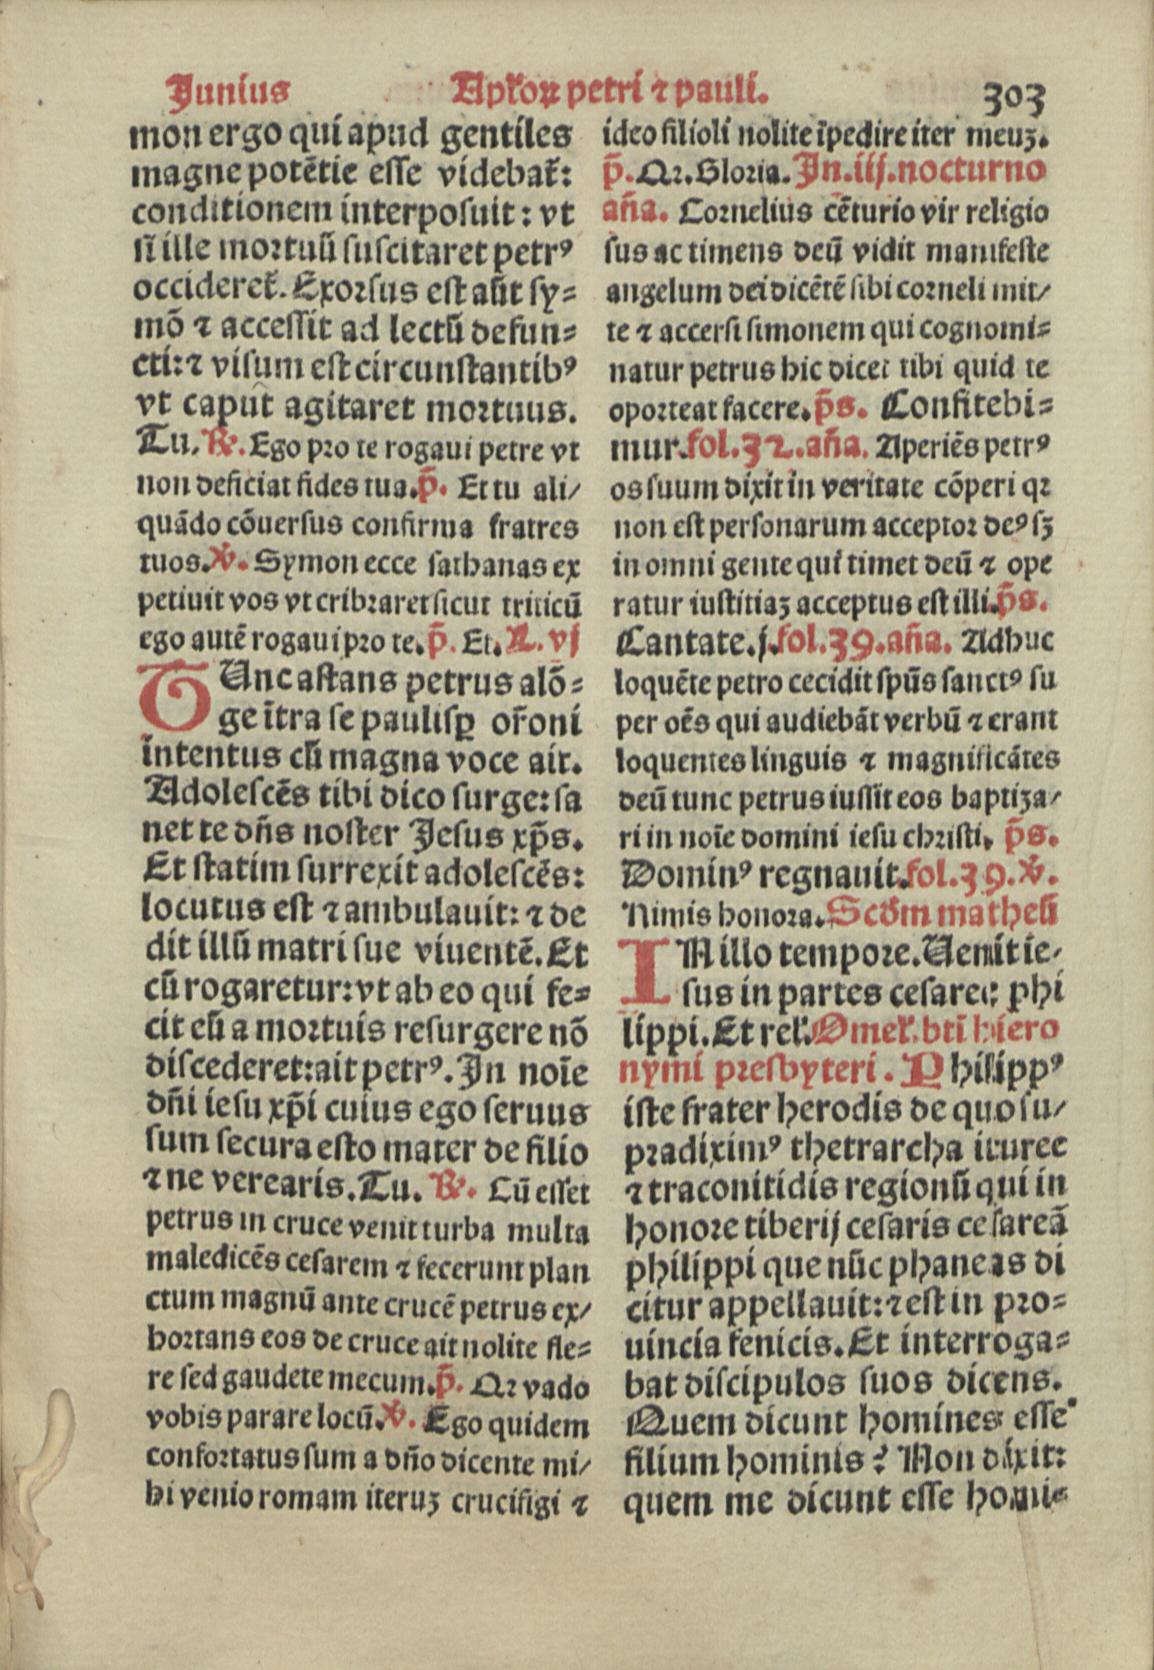 Junius Apľoꝝ petri ⁊ pauli. 303
mon ergo qui apud gentiles
magne potētie esse videbat̄:
conditionem interposuit: vt
si ille mortuū suscitaret petrꝰ
occideret̄. Exorsus est aūt sy=
mō ⁊ accessit ad lectū defun=
cti: ⁊ visum est circunstantibꝰ
vt caput agitaret mortuus.
Tu. ℟. Ego pro te rogaui petre vt
non deficiat fides tua. p̄. Et tu ali/
quādo cōuersus confirma fratres
tuos. ℣. Symon ecce sathanas ex
petiuit vos vt cribraret sicut triticū
ego autē rogaui pro te. p̄. Et. L. vj
TUnc astans petrus alō=
ge ītra se paulisꝑ or̄oni
intentus cū magna voce ait.
Adolescēs tibi dico surge: sa
net te dn̄s noster Jesus xp̄s.
Et statim surrexit adolescēs:
locutus est ⁊ ambulauit: ⁊ de
dit illū matri sue viuentē. Et
cū rogaretur: vt ab eo qui fe=
cit eū a mortuis resurgere nō
discederet: ait petrꝰ. In noīe
dn̄i iesu xp̄i cuius ego seruus
sum secura esto mater de filio
⁊ ne verearis. Tu. ℟. Cū esset
petrus in cruce venit turba multa
maledicēs cesarem ⁊ fecerunt plan
ctum magnū ante crucē petrus ex/
hortans eos de cruce ait nolite fle=
re sed gaudete mecum. p̄. Qr vado
vobis parare locū. ℣. Ego quidem
confortatus sum a dn̄o dicente mi/
hi venio romam iteruꝫ crucifigi ⁊
ideo filioli nolite īpedire iter meuꝫ.
p̄. Qr. Gloria. In .iij. nocturno
an̄a. Cornelius cēturio vir religio
sus ac timens deū vidit manifeste
angelum dei dicētē sibi corneli mit/
te ⁊ accersi simonem qui cognomi=
natur petrus hic dicet tibi quid te
oporteat facere. p̄s. Confitebi=
mur. fol. 32. an̄a. Aperiēs petrꝰ
os suum dixit in veritate cōperi qr
non est personarum acceptor deꝰ sꝫ
in omni gente qui timet deū ⁊ ope
ratur iustitiaꝫ acceptus est illi. p̄s.
Cantate .j. fol. 39. an̄a. Adhuc
loquēte petro cecidit spūs sanctꝰ su
per oēs qui audiebāt verbū ⁊ erant
loquentes linguis ⁊ magnificātes
deū tunc petrus iussit eos baptiza/
ri in noīe domini iesu christi. p̄s.
Dominꝰ regnauit. fol. 39. ℣.
Nimis honora. Scđm matheū
IN illo tempore. Uenit ie/
sus in partes cesaree phi
lippi. Et rel̄. Omel̄. btī hiero
nymi presbyteri. Philippꝰ
iste frater herodis de quo su/
pradiximꝰ thetrarcha ituree
⁊ traconitidis regionū qui in
honore tiberij cesaris cesareā
philippi que nūc phaneas di
citur appellauit: ⁊ est in pro=
uincia fenicis. Et interroga=
bat discipulos suos dicens.
Quem dicunt homines esse
filium hominis? Non dixit:
quem me dicunt esse homi=